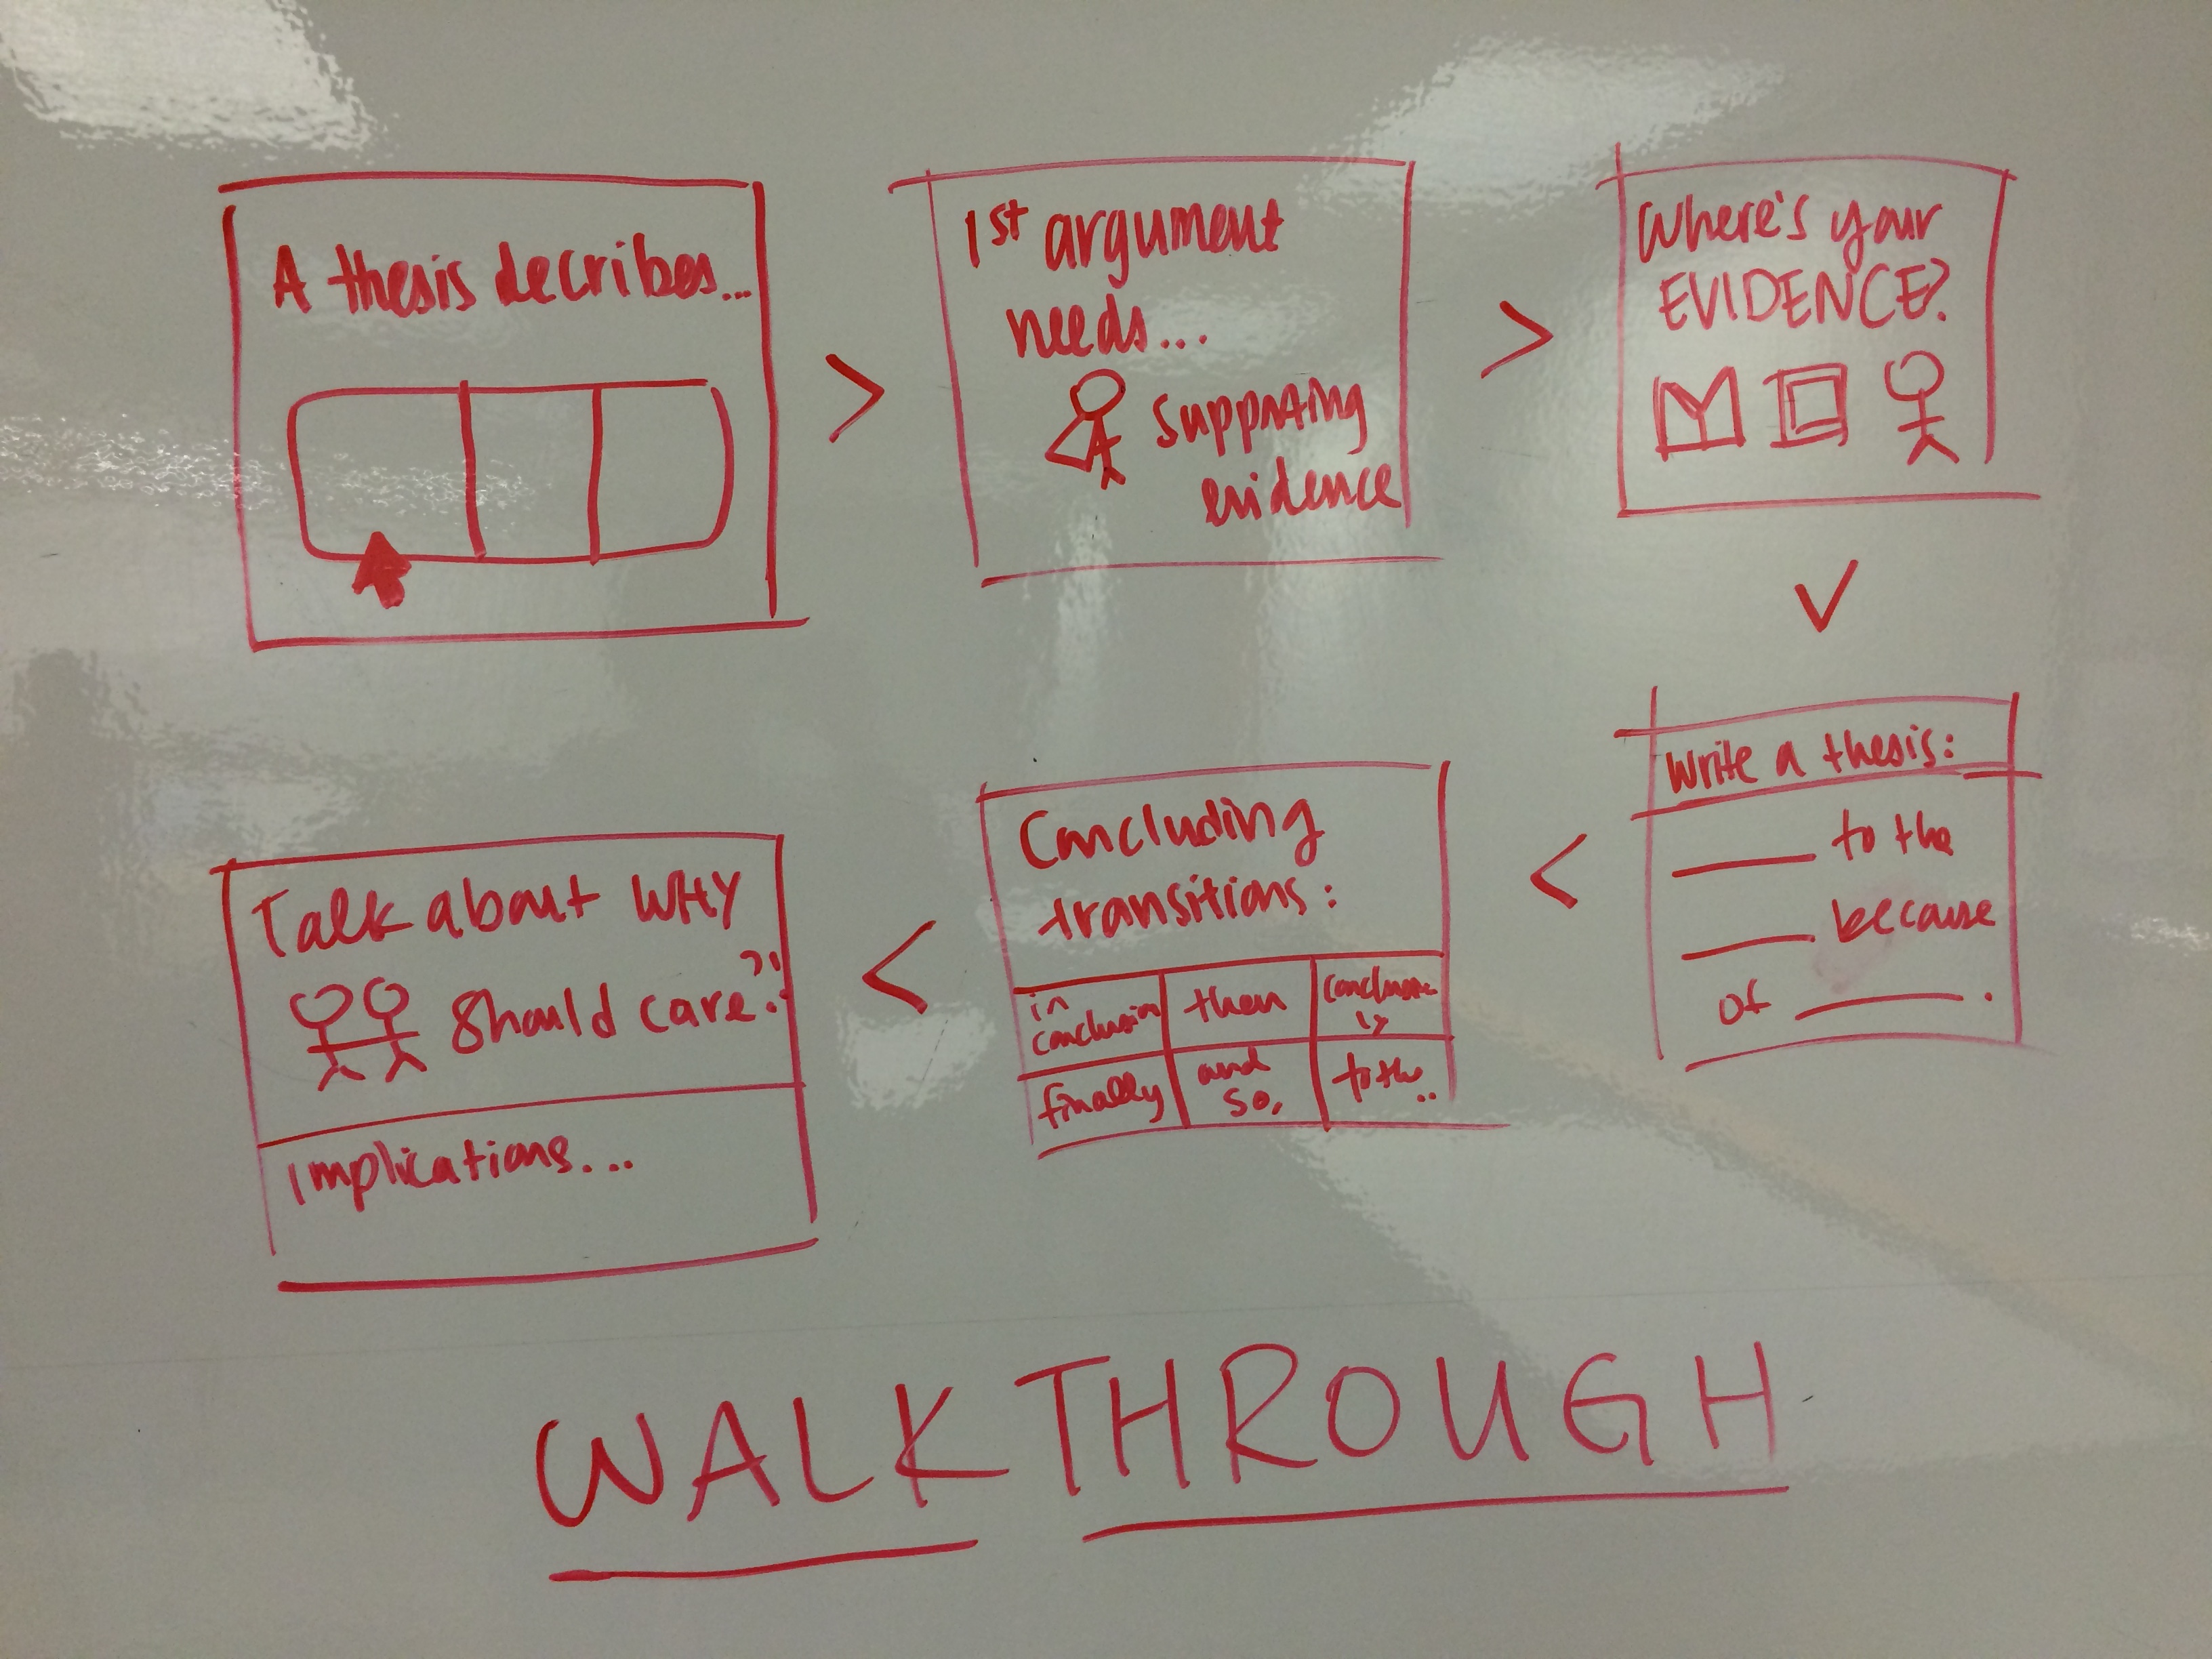 A thesis decribes...
1st argument
needs...
supporting
evidence
Where's your
EVIDENCE?
Write a thesis:
____ to the
____ because
of ____.
Concluding
transitions:
in
conclusion
then
finally
and
so,
to the..
Talk about WHY
should care?!
Implications...
WALKTHROUGH